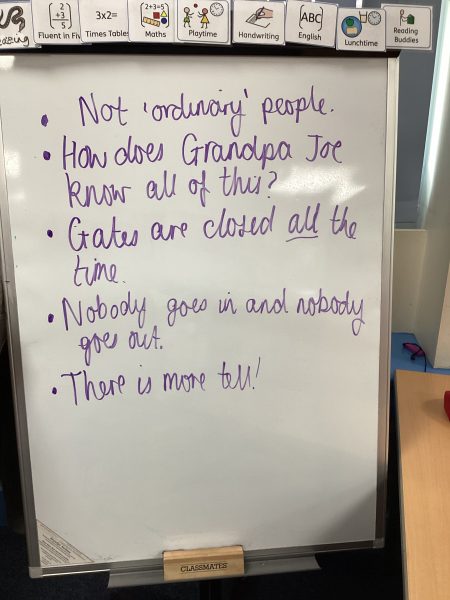 Fluent in Five
2
+3
5
3x2=
Times Tables
2+3=5
Maths
Playtime
Handwriting
ABC
English
Lunchtime
Reading
Buddies
• Not 'ordinary' people.
• How does Grandpa Joe
know all of this?
• Gates are closed all the
time.
• Nobody goes in and nobody
goes out.
• There is more tell!
CLASSMATES